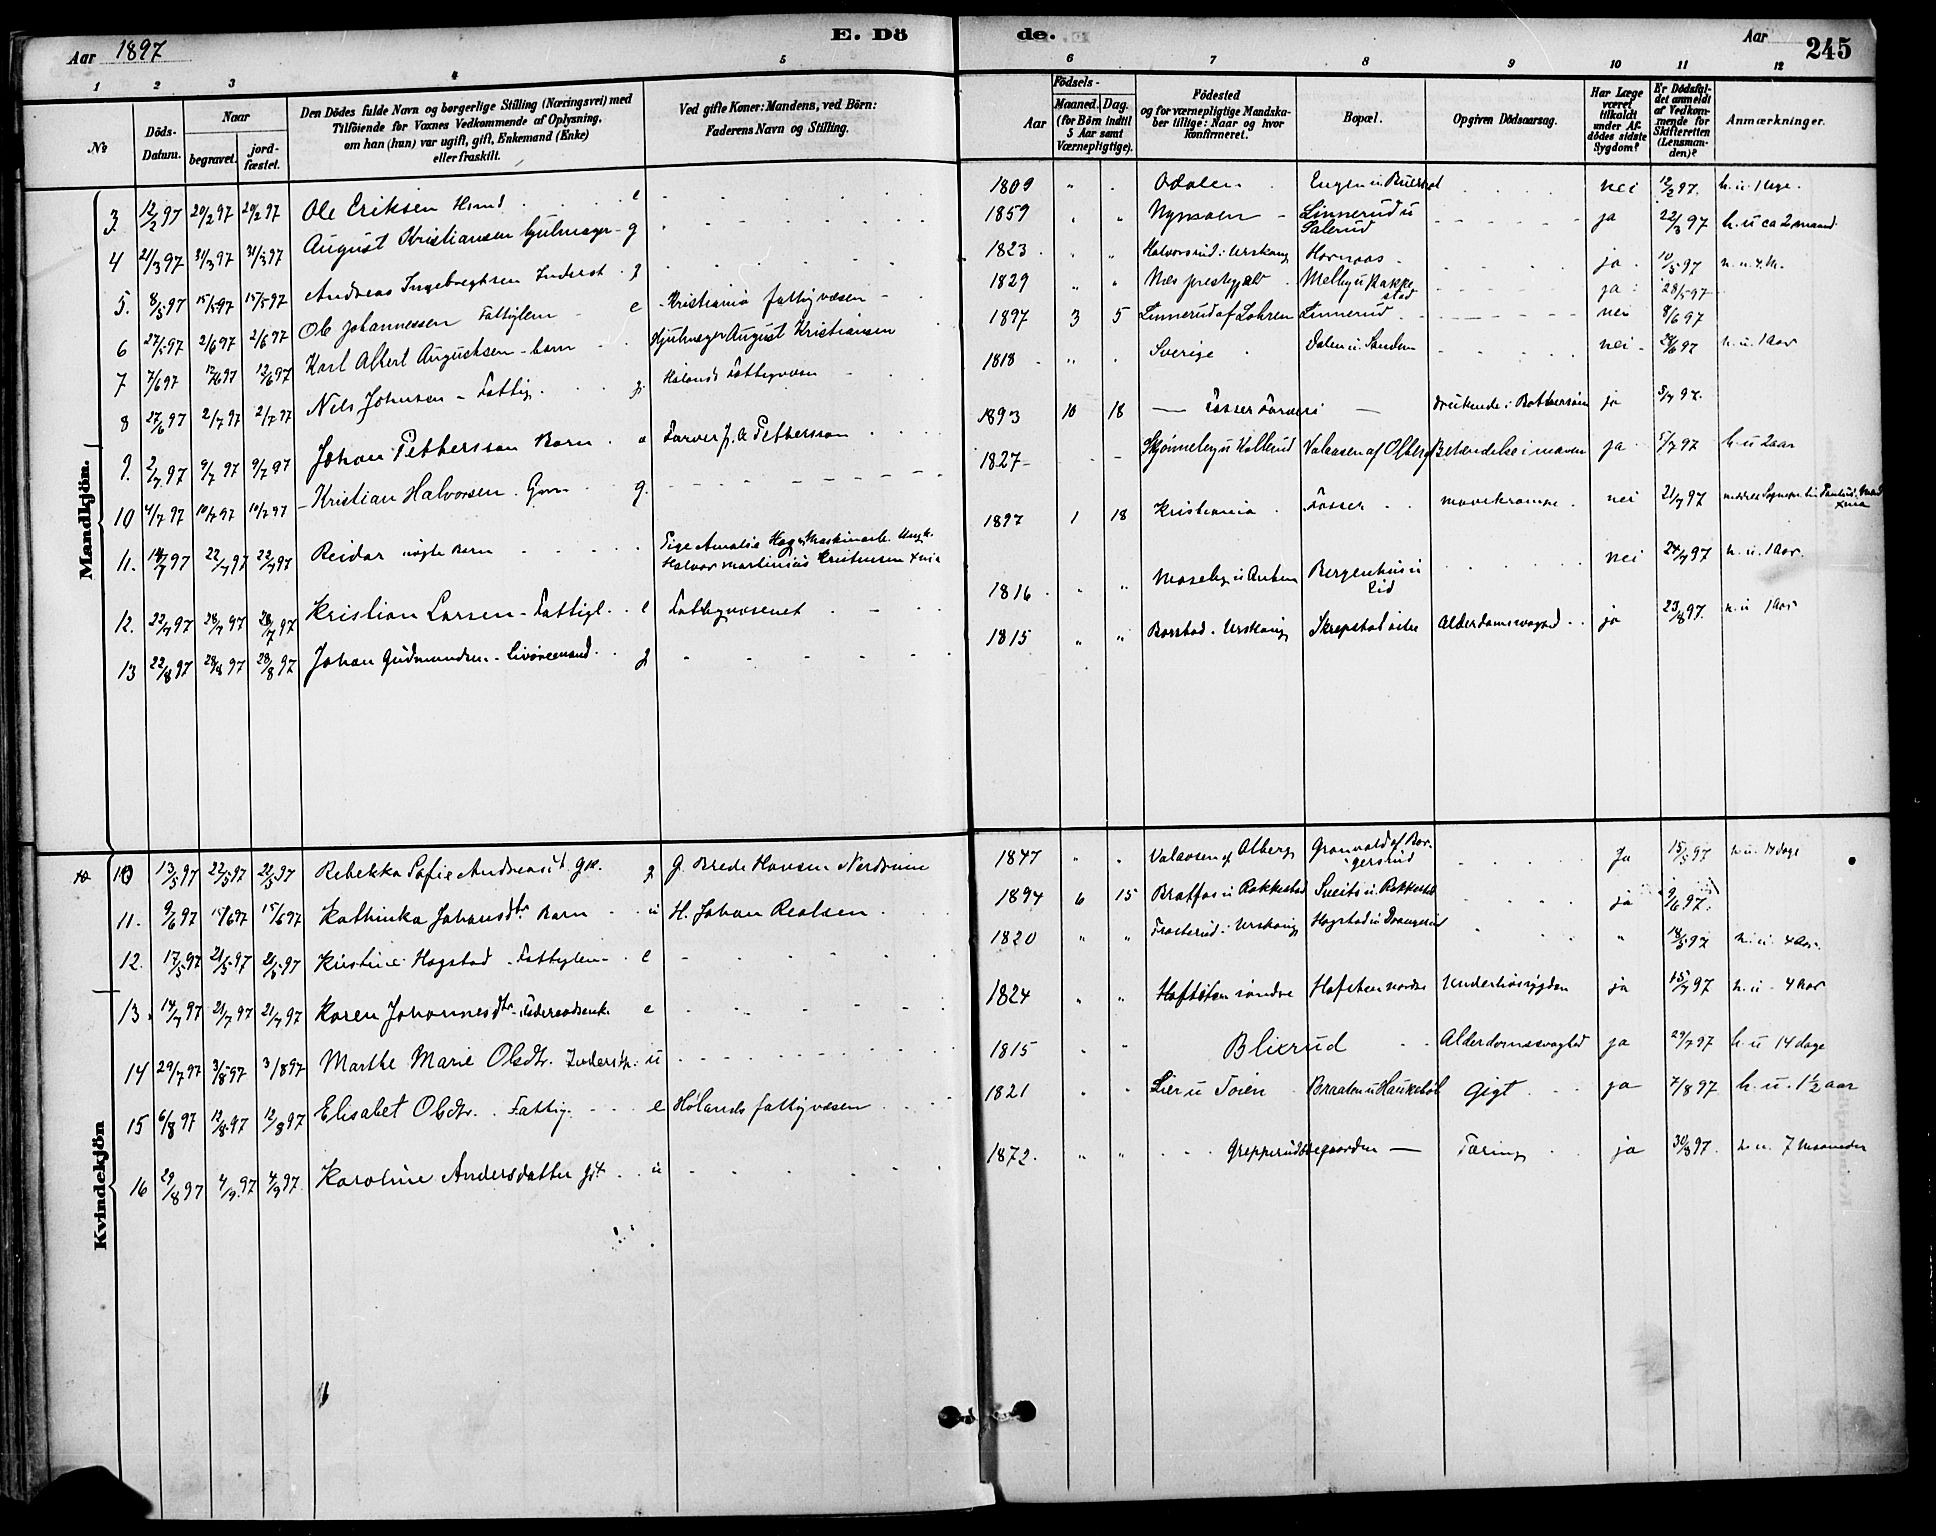 Aar 1897
E. Dö
de.
Aar
245
1 2 3 4 5
6 7 8 9 10 11 12
№
Döds-Datum.
Naar
begravet. jord-fæstet.
Den Dödes fulde Navn og borgerlige Stilling (Næringsvei) med
Tilföiende for Voxnes Vedkommende af Oplysning,
om han (hun) var ugift, gift, Enkemand (Enke)
eller fraskilt.
Ved gifte Koner: Mandens, ved Börn:
Faderens Navn og Stilling.
Födsels-
Aar
Maaned. Dag.
(for Börn indtil
5 Aar samt
Værnepligtige).
Födested
og for værnepligtige Mandska-
ber tillige: Naar og hvor
Konfirmeret.
Bopæl.
Opgiven Dödsaarsag.
Har Læge
været
tilkaldt
under Af-
dödes sidste
Sygdom?
Er Dödsfal-
det anmeldt
af Vedkom-
mende for
Skifteretten
(Lensman-
den)?
Anmærkninger.
Mandkjön.
3. 12/2 97 20/2 97 20/2 97 Ole Eriksen e 1809 Odalen nei 12/2 97.
4 21/3 97 31/3 97 31/3 97 August Kristiansen Hjulmager g 1859 Linnerud u Salerud ja 22/3 97 h. u ca 2 maand
5. 8/5 97 15/5 97 15/5 97 Andreas Ingebregtsen Inderst g 1823 Halvorsrud i Urskoug Hornaas ja 10/5 97
6 27/5 97 2/6 97 2/6 97 Ole Johannessen Fattiglem e Kristiania fattigvæsen 1829 Næs prestegjæld Melby u Rakkestad ja 28/5 97
7 7/6 97 12/6 97 12/6 97 Karl Albert Augustsen barn Hjulmager August Kristiansen 1897 3 5 Linnerud af Lohren Linnerud nei 8/6 97
8 27/6 97 2/7 97 2/7 97 Nils Johnsen Fattig. g. Hølands Fattigvæsen 1818 Sverige Dalen u. Sanden nei h. u. 1 Aar
9. 2/7 97 9/7 97 9/7 97 Johan Pettersson Barn Farver J. A Pettersson 1893 10 18 Fosser Farveri ja 3/7 97.
10 4/7 97 10/7 97 10/7 97 Kristian Halvorsen g. 1827 Skjønneby u Kollerud Valaasen af Olberg Betændelse i maven ja 5/7 97 h. u 2 aar
11. 14/7 97 22/7 97 22/7 97 Reidar uægte Barn Pige Amalie Hagen Maskinarb. Ungk.
Halvor Martinius Kristensen Xnia 1897 1 18 Kristiania Fosser mavekrampe nei 21/7 97
12. 22/7 97 28/7 97 28/7 97 Kristian Larsen Fattigl. e Fattigvæsenet 1816 Bergenhus u Lid nei 24/7 97 h. u. 1 Aar.
13 22/8 97 28/8 97 28/8 97 Johan Gudmundsen Livøremand g 1815 Borstad i Urskoug Skrepstad østre Alderdomssvaghed ja 23/8 97. h. u 1 Aar
Kvindekjön
10 13/5 97 22/5 97 22/5 97 Rebekka Sofie Andreasdt. Gk. g G. Brede Hansen Nerdrum 1847 Valaasen af Alberg Grønvold af Borgersrud Ja 15/5 97 h. u. 14 dage
11. 9/6 97 15/6 97 15/6 97 Kathinka Johansdtr. Barn u H. Johan Realsen 1894 6 15 Bratfos u Rakkestad Sveits u. Rakkestad ja 9/6 97.
12. 17/5 97 21/5 97 21/5 97 Kristine Hogstad Fattiglem e 1820 Froterud i Urskoug Hogstad u Drangsrud " 18/5 97 h. u. 4 Aar.
13. 14/7 97 21/7 97 21/7 97 Karen Johannesdtr. Føderaadsenk. e 1824 Hofsten søndre Hofsten nordre Underlivssygdom ja 15/7 97 h. u. 4 Aar
14 29/7 97 3/8 97 3/8 97 Marthe Marie Olsdtr. Inderstk. u 1815 Blixrud Alderdomssvaghed ja 29/7 97 h. u 14 dage
15 6/8 97 12/8 97 12/8 97 Elisabet Olsdtr. Fattig. e Hølands fattigvæsen 1821 Lier u Toien Braaten u Haukebøl Gigt ja 7/8 97 h. u. 1 1/2 aar
16 29/8 97 4/9 97 4/9 97. Karoline Andersdatter u 1872. Grepperudbergaarden Tæring ja 30/8 97. h. u. 7 maaneder